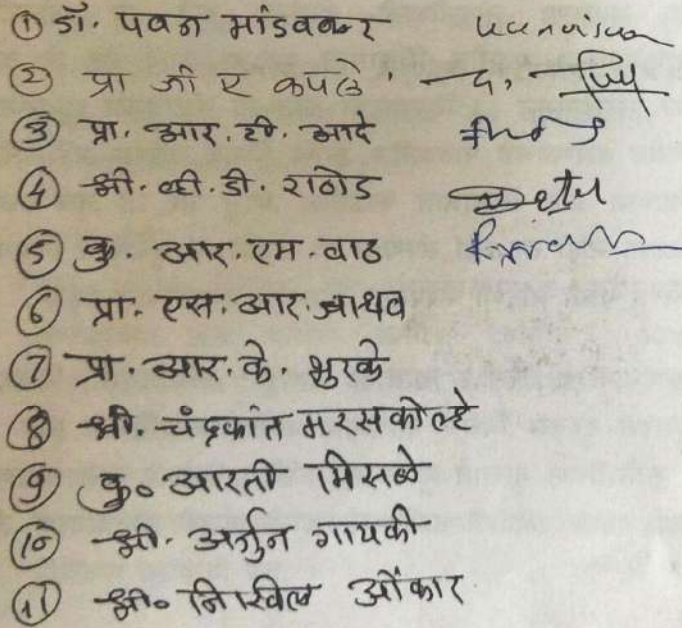 ① डॉ. पवन मांडवकर
② प्रा जी ए कपले
③ प्रा. आर. टी. आदे
④ श्री. व्ही. डी. राठोड
⑤ कु. आर. एम. वाठ
⑥ प्रा. एस. आर. जाधव
⑦ प्रा. आर. के. भुरके
⑧ श्री. चंद्रकांत मरसकोल्हे
⑨ कु. आरती मिसळे
⑩ श्री. अर्जुन गायकी
⑪ श्री. निखिल ओंकार